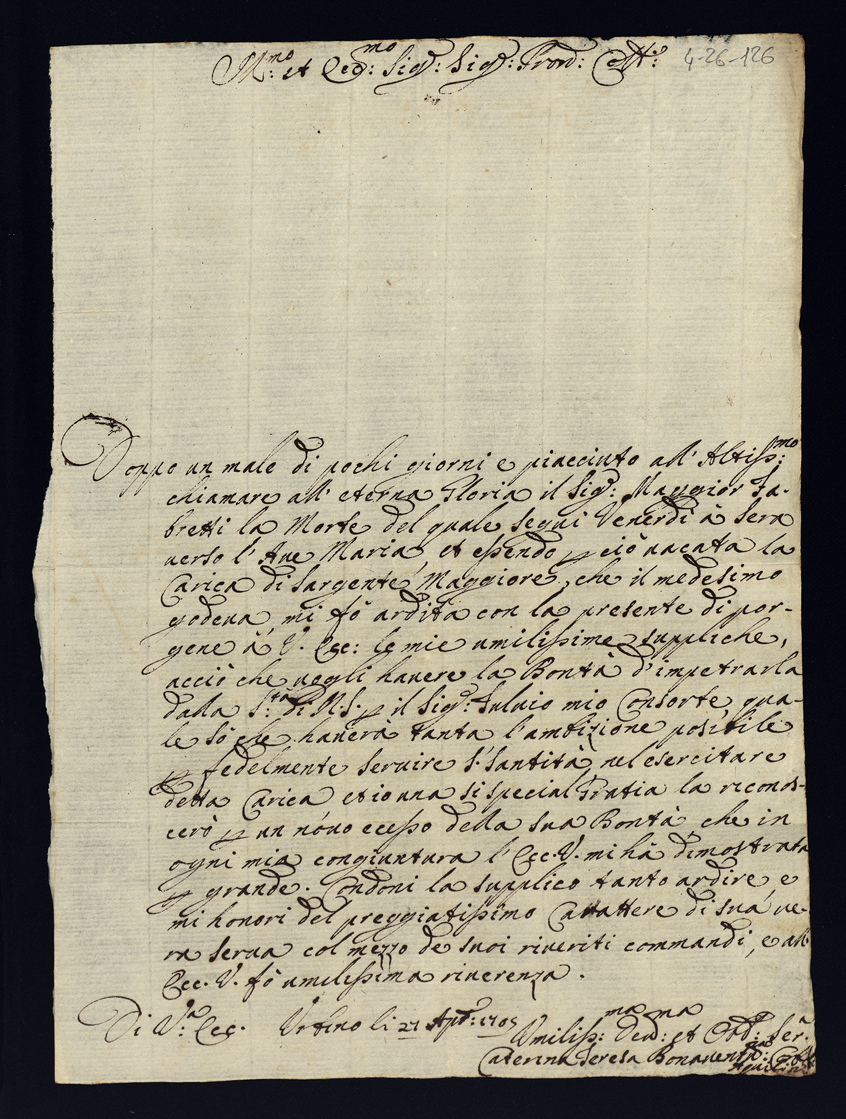 Ill:mo et Ecc:mo Sig:r Sig:r Pron: Coll:mo 4-26-126
Doppo un male di pochi giorni e piacciuto all' Altiss:mo
chiamare all' eterna Gloria il Sig:r Maggior Fa-
bretti la Morte del quale segui Venerdi à sera
verso l'Ave Maria, et essendo p ciò vacata la
Carica di Sargente Maggiore, che il medesimo
godeua, mi fò ardita con la presente di por-
gere à V. Ecc: le mie umilissime suppliche,
acciò che uegli hauere la Bontà d'impetrarla
dalla S:tà di N.S. p il Sig:r Fuluio mio Consorte, qua-
le sò che hauerà tanta l'ambizione possibile
p fedelmente seruire S. Santità nel esercitare
detta Carica et io una si special Gratia la ricono-
scerò p un nouo ecesso della sua Bontà che in
ogni mia congiuntura l'Ecc. V. mi hà dimostrata
p grande. Condoni la supplico tanto ardire, e
mi honori del preggiatissimo Carattere di sua ue-
ra serua col mezzo de suoi riueriti commandi, e all'
Ecc. V. fò umilissima riuerenza.
Di V:ra Ecc. Urbino li 27 Apr:e 1705
Umiliss:ma Deu:ma et Obb: Ser:a
Caterina Teresa Bonauentura